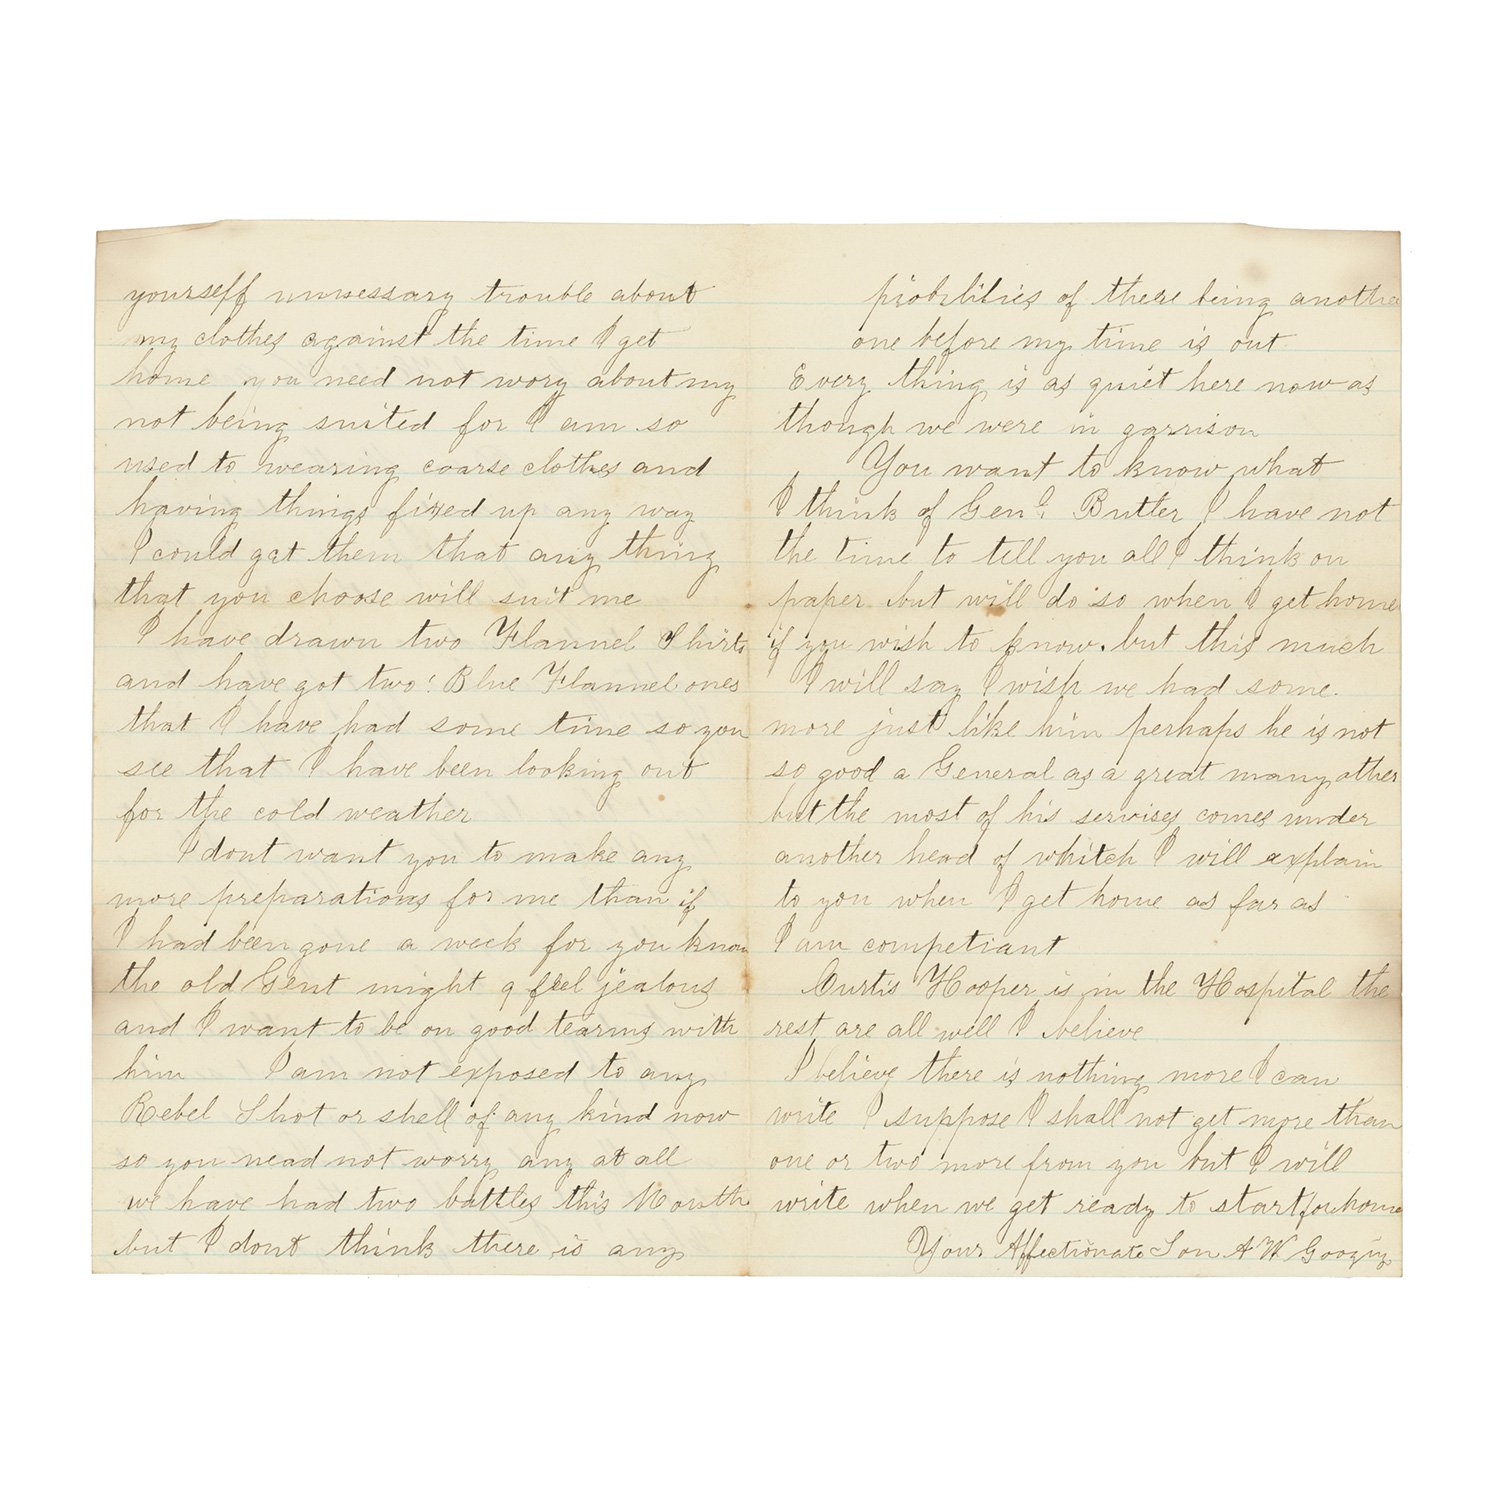 yourself unnsessary trouble about
my clothes against the time I get
home you need not wory about my
not being suited for I am so
used to wearing coarse clothes and
having things fixed up any way
I could get them that any thing
that you choose will suit me
I have drawn two Flannel Shirts
and have got two Blue Flannel ones
that I have had some time so you
see that I have been looking out
for the cold weather
I dont want you to make any
more preparations for me than if
I had been gone a week for you know
the old Gent might feel jealous
and I want to be on good tearms with
him I am not exposed to any
Rebel Shot or shell of any kind now
so you nead not worry any at all
we have had two battles this Month
but I dont think there is any
probilities of there being another
one before my time is out
Every thing is as quiet here now as
though we were in garrison
You want to know what
I think of Genl. Butler I have not
the time to tell you all I think on
paper but will do so when I get home
if you wish to know. but this much
I will say I wish we had some.
more just like him perhaps he is not
so good a General as a great many other
but the most of his servises comes under
another head of whitch I will explain
to you when I get home as far as
I am competiant
Curtis Hooper is in the Hospital the
rest are all well I believe
I believe there is nothing more I can
write I suppose I shall not get more than
one or two more from you but I will
write when we get ready to start for home
Your Affectionate Son A W